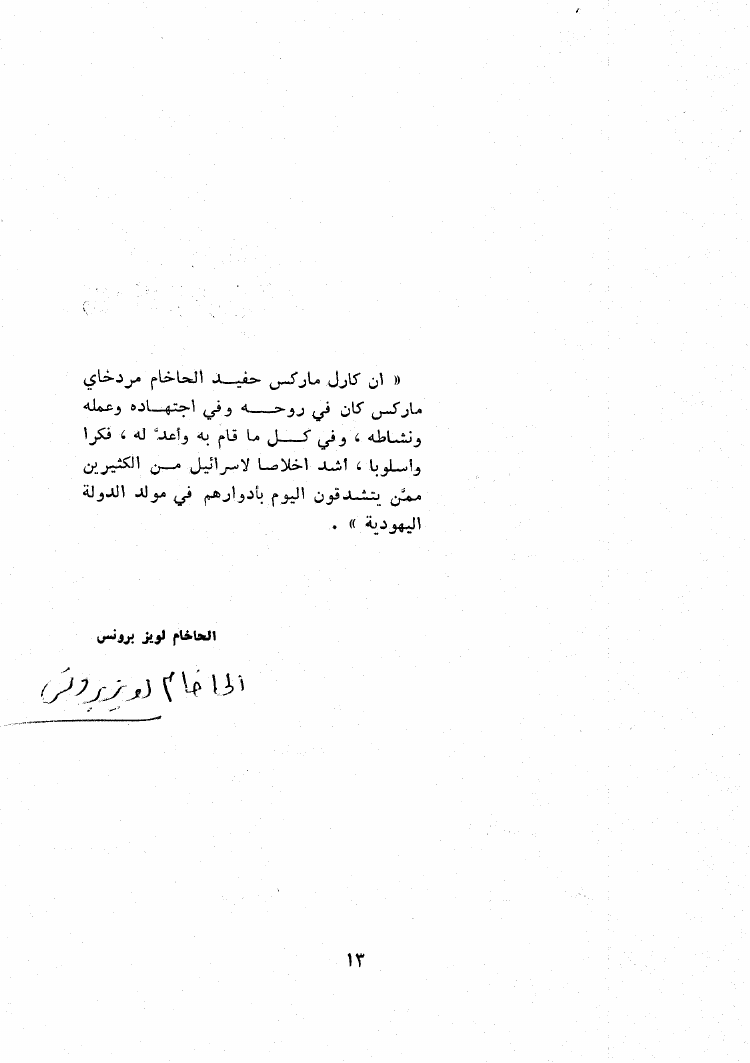 « ان كارل ماركس حفيـــد الحاخام مردخاي
ماركس كان في روحـــــه وفي اجتهـاده وعمله
ونشاطه ، وفي كـــــل ما قام به وأعدَّ له ، فكرا
واسلوبا ، أشد اخلاصا لاسرائيل مــن الكثيرين
ممَّن يتشدقون اليوم بأدوارهم في مولد الدولة
اليهودية » .
الحاخام لويز برونس
الحاخام لويز برونس
١٣